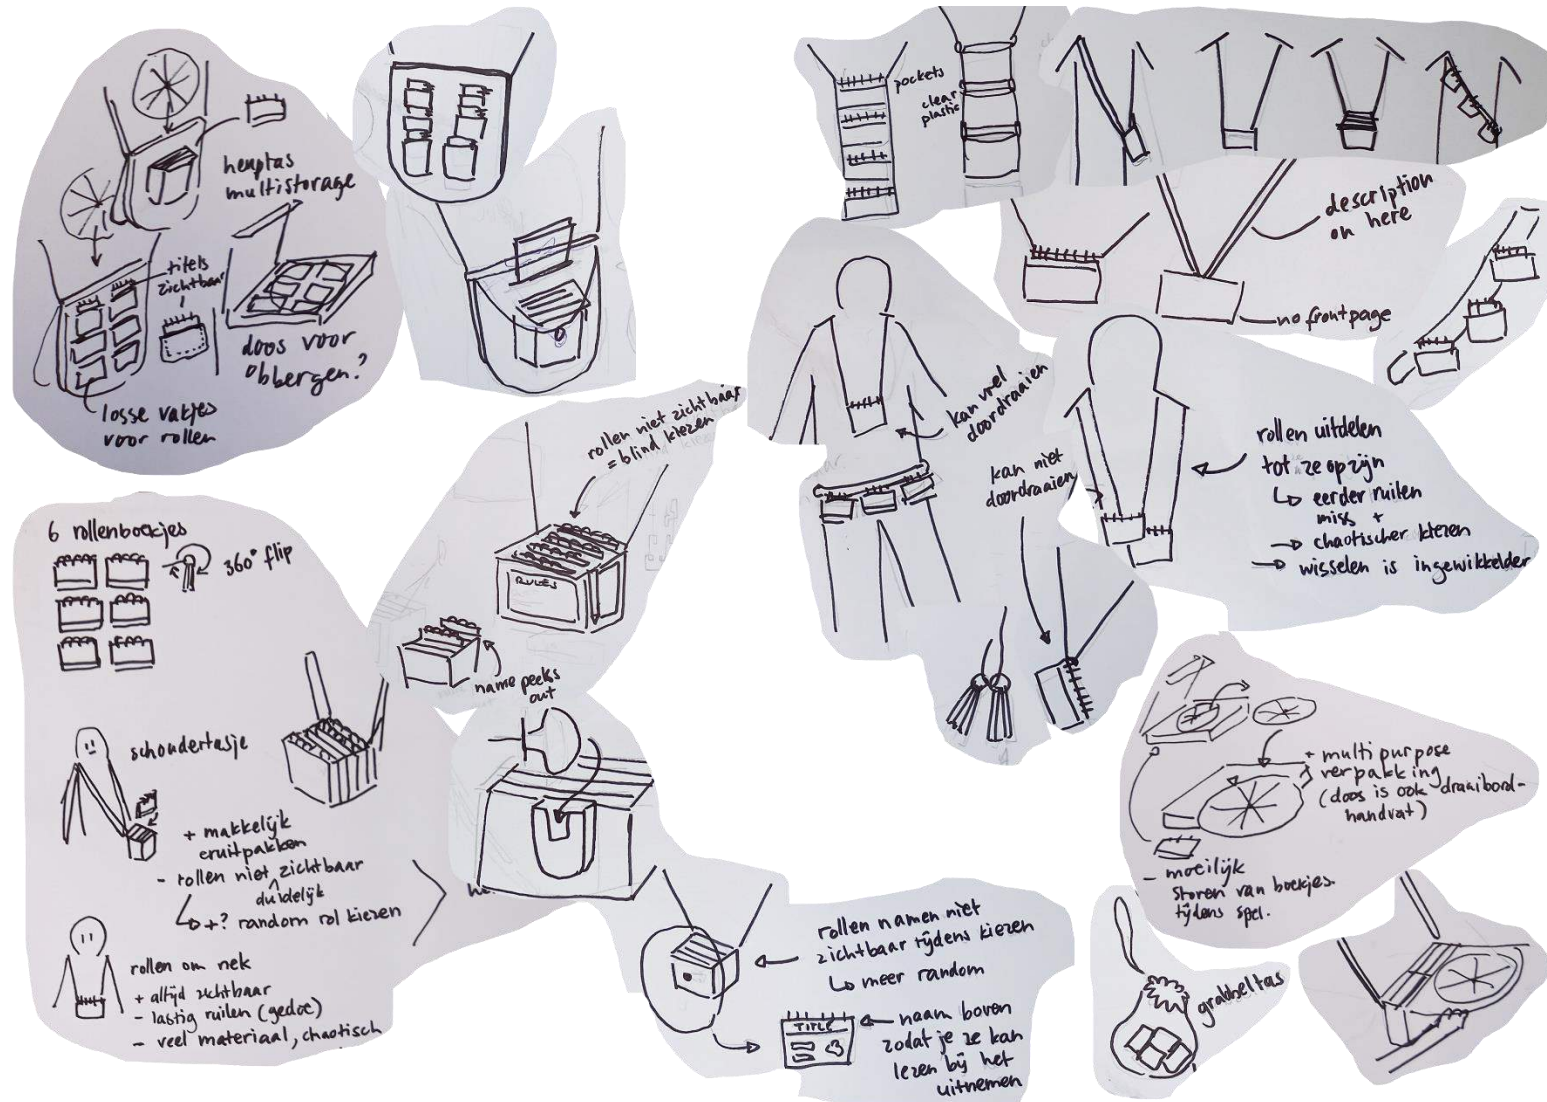 heuptas
multistorage
titels
zichtbaar
doos voor
opbergen?
losse vakjes
voor rollen
pockets
clear
plastic
description
on here
no frontpage
rollen niet zichtbaar
= blind kiezen
RULES
name peeks
out
kan wel
doordraaien
kan niet
doordraaien
rollen uitdelen
tot ze op zijn
↳ eerder ruilen
miss +
→ chaotischer kiezen
→ wisselen is ingewikkelder
6 rollenboekjes
360° flip
schoudertasje
+ makkelijk
eruitpakken
- rollen niet zichtbaar
duidelijk
↳ +? random rol kiezen
rollen om nek
+ altijd zichtbaar
- lastig ruilen (gedoe)
- veel materiaal, chaotisch
rollen namen niet
zichtbaar tijdens kiezen
↳ meer random
TITLE
naam boven
zodat je ze kan
lezen bij het
uitnemen
+ multi purpose
verpakking
(doos is ook draaibord-
handvat)
- moeilijk
storen van boekjes.
tijdens spel.
grabbeltas